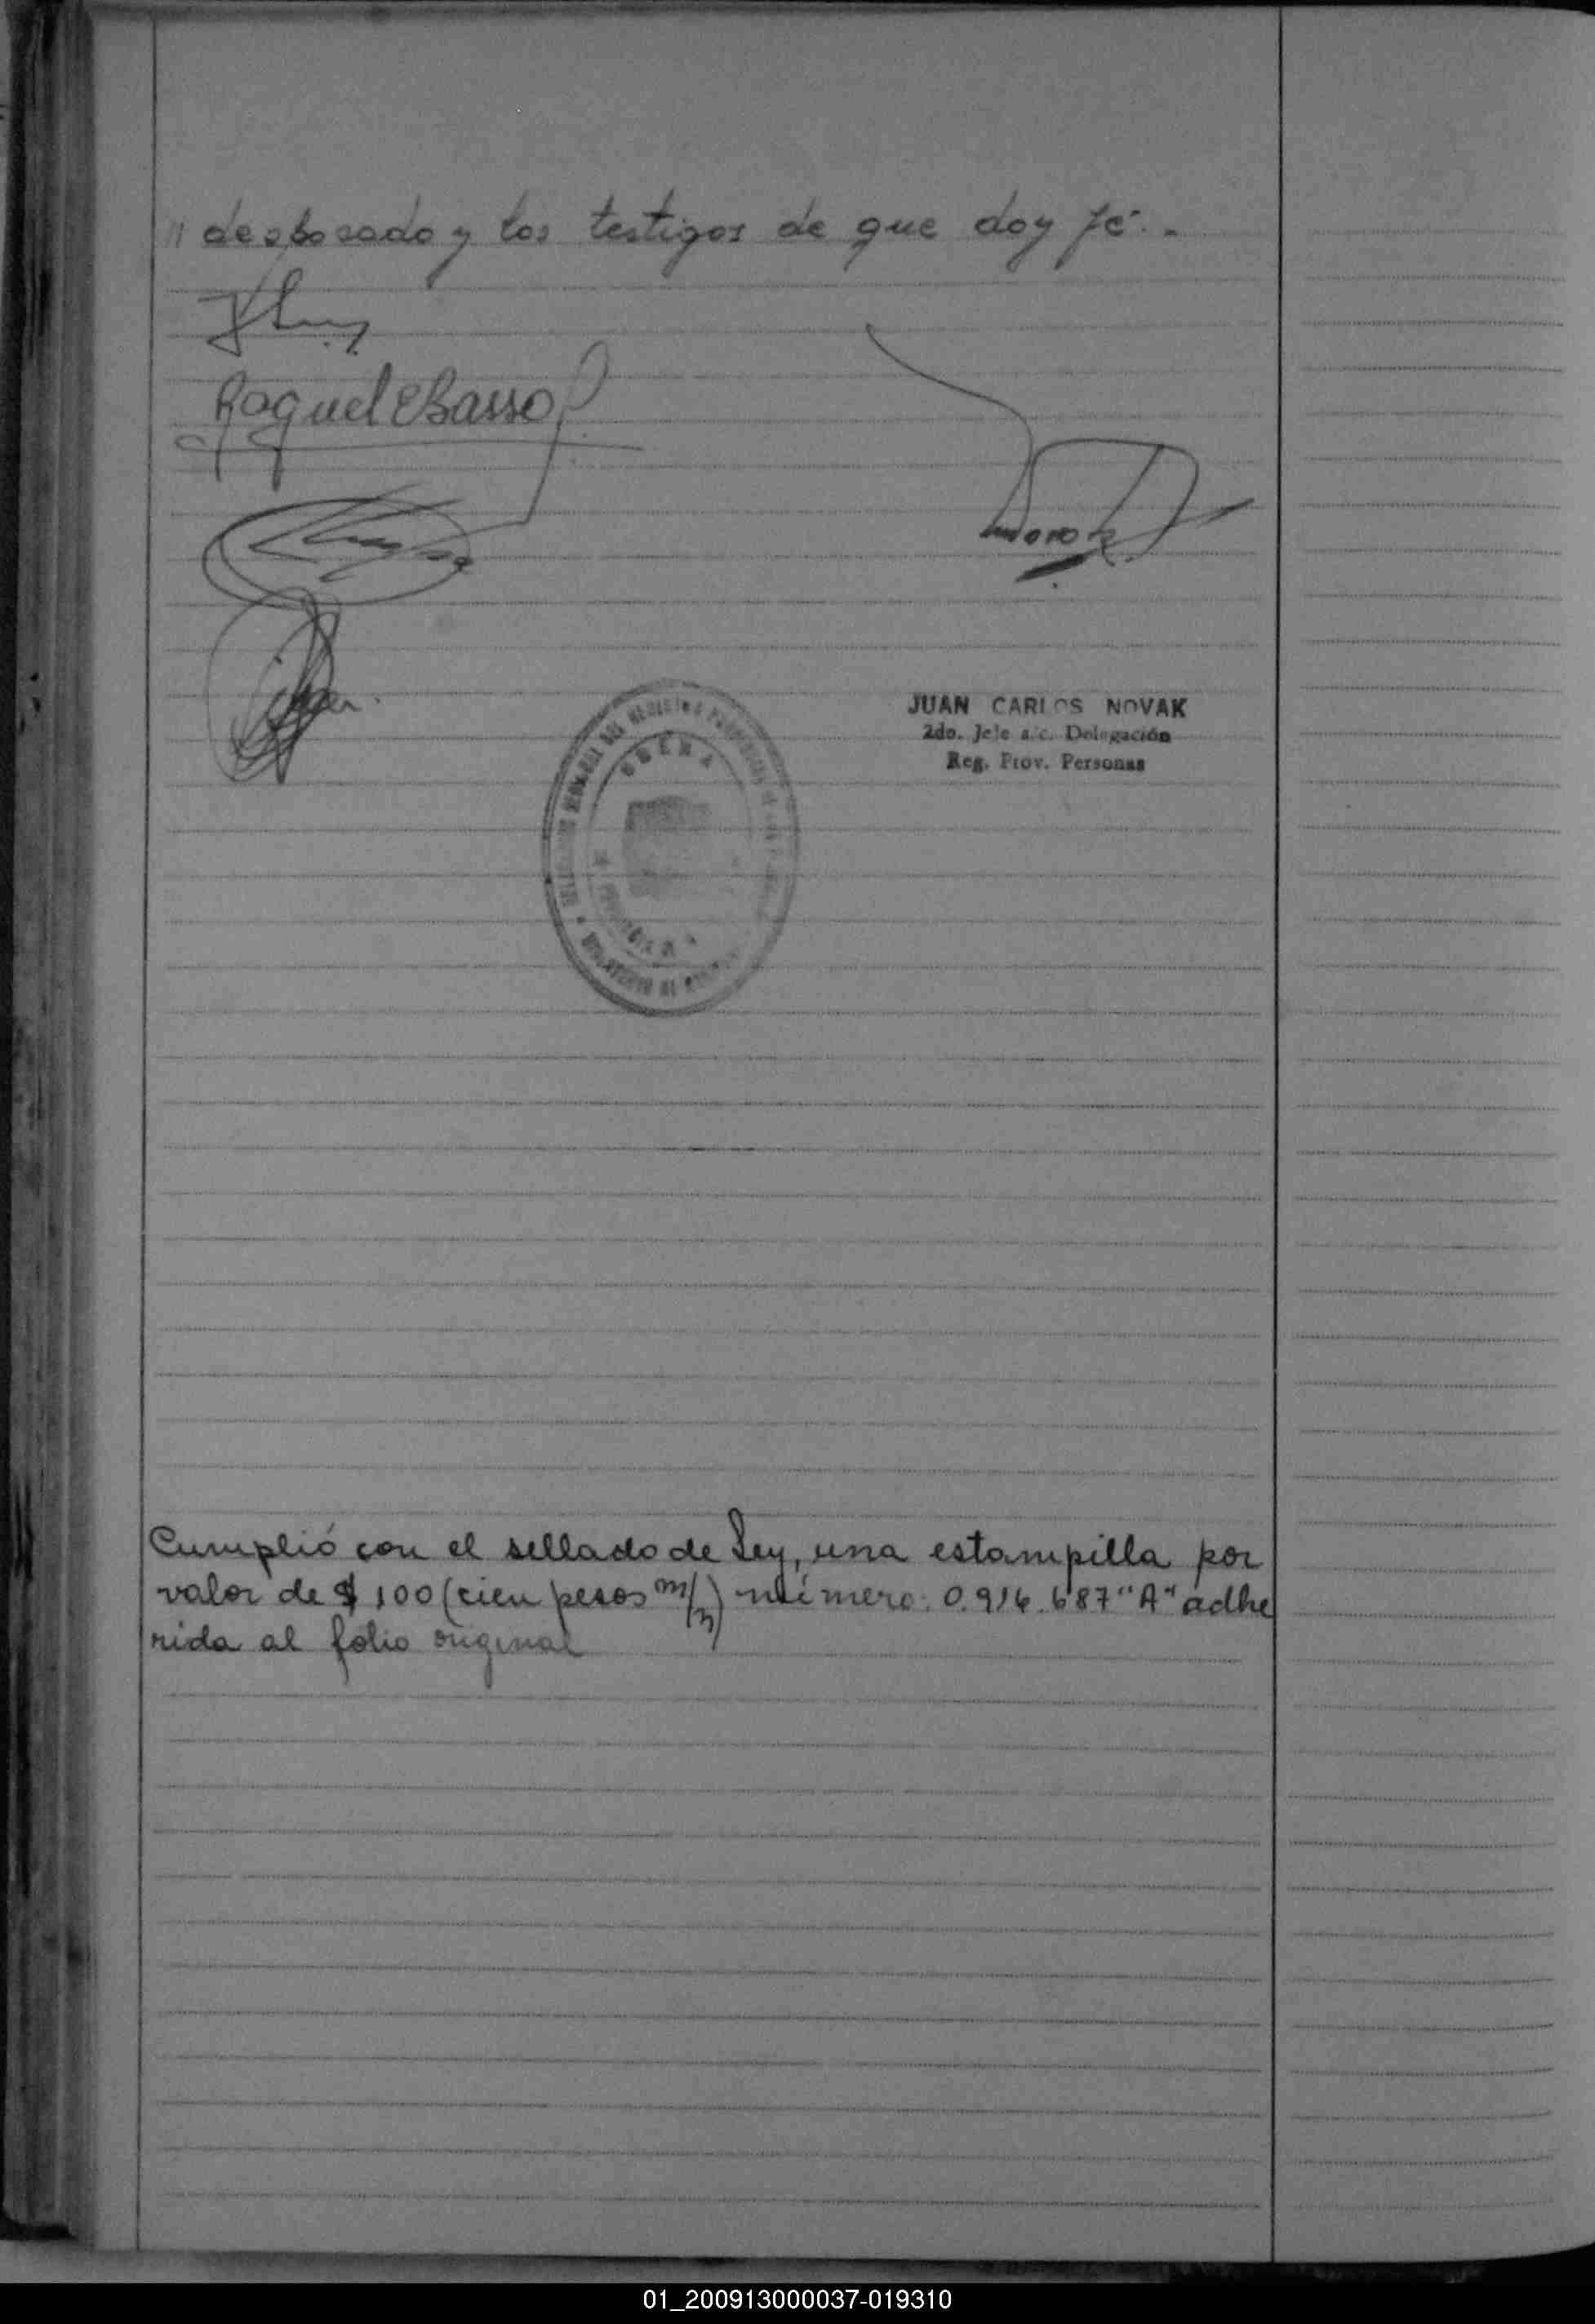 // desposado y los testigos de que doy fé.-
Raquel E Basso
JUAN CARLOS NOVAK
2do. Jefe a/c. Delegación
Reg. Prov. Personas
OBERA
Cumplió con el sellado de Ley, una estampilla por
valor de $ 100 (cien pesos m/n) número: 0.916.687 "A" adhe
rida al folio original
01_200913000037-019310